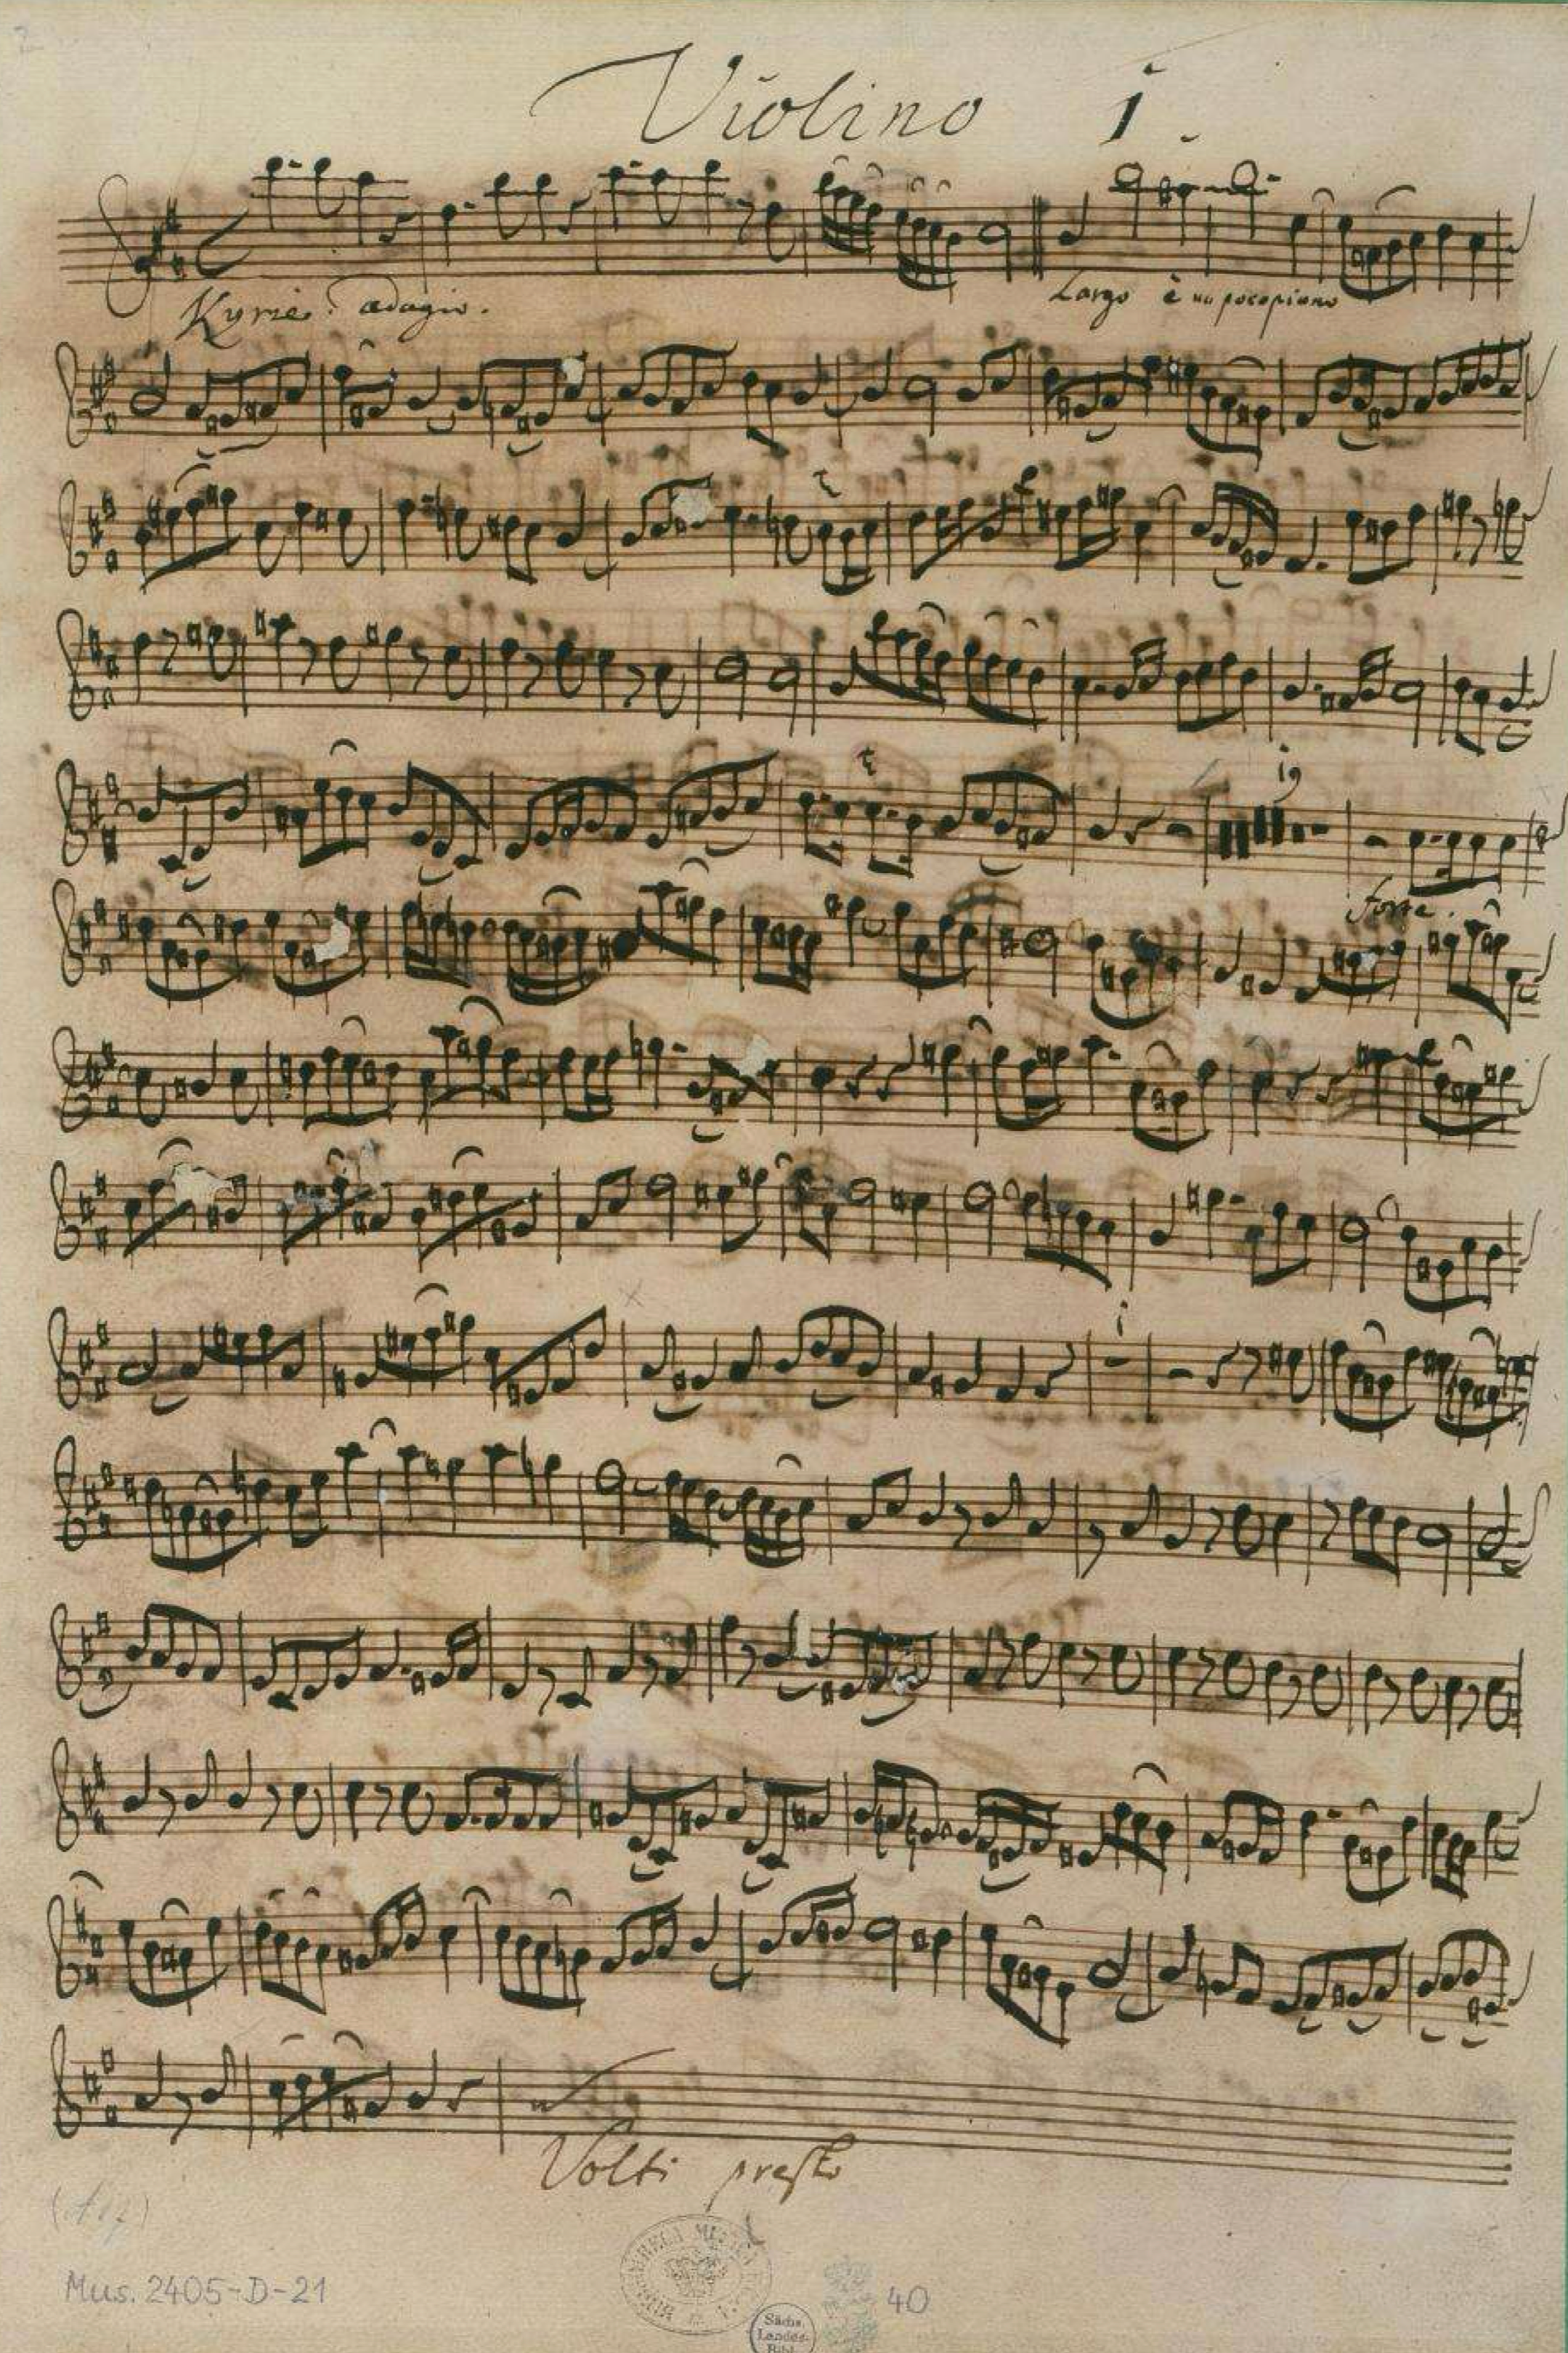 Violino 1.
Kyrie. adagio. Largo è un poco piano
t
t
19
forte.
1
Volti presto
Mus. 2405-D-21
40
Sächs.
Landes-
Bibl.